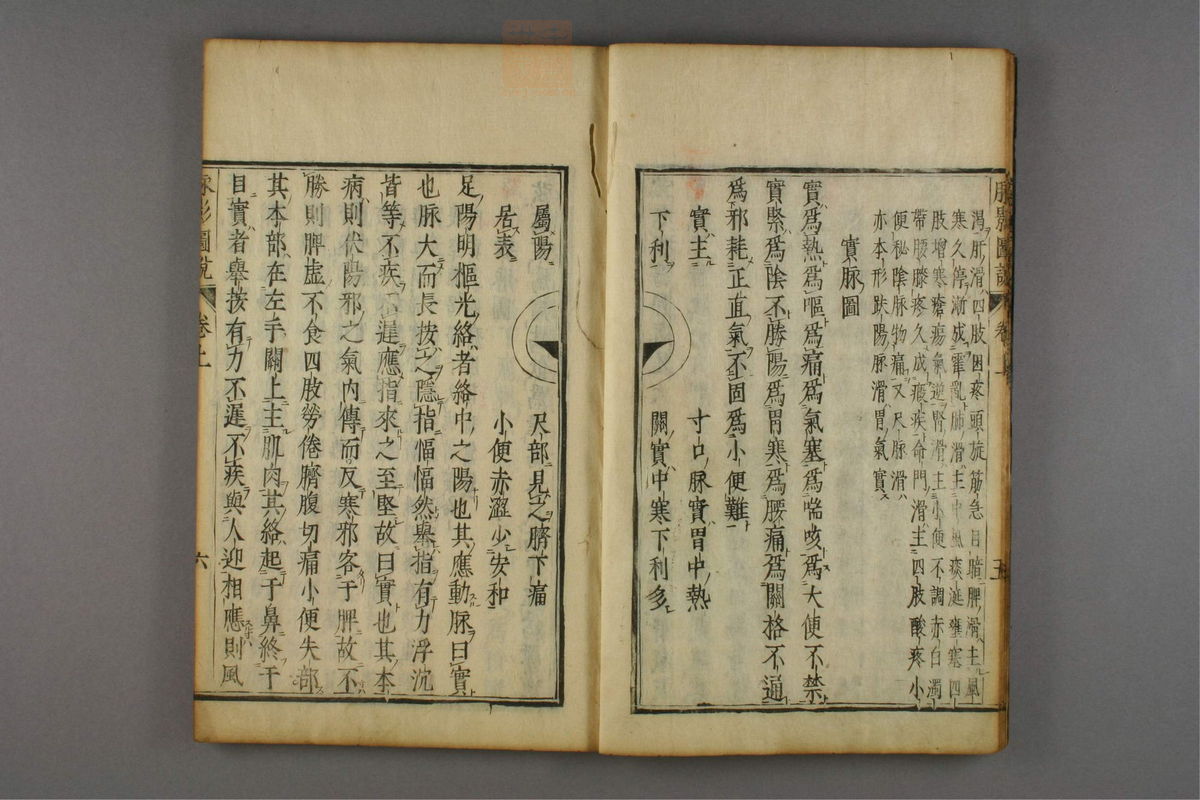 渴肝滑四肢困疼頭旋筋急目暗脾滑主風
寒久停漸成霍亂肺滑主中風痰涎壅寒四
肢增寒瘡瘍氣逆腎滑主小便不調赤白濁
帶腰膝疼久成瘕疾命門滑主四肢酸疼小
便秘陰脉物痛又尺脉滑
亦本形趺陽脉滑胃氣實
實脉圖
實爲熱爲嘔爲痛爲氣塞爲喘咳爲大便不禁
實緊爲陰不勝陽爲胃寒爲腰痛爲關格不通
爲邪耗正直氣不固爲小便難
實主
寸口脉實胃中熱
下利
關實中寒下利多
屬陽
尺部見之臍下痛
居表
小便赤澀少安和
足陽明樞光絡者絡中之陽也其應動脉曰實
也脉大而長按之隱指愊愊然舉指有力浮沉
皆等不疾不遲應指來之至堅故曰實也其本
病則伏陽邪之氣內傳而反寒邪客于脾故不
勝則脾虛不食四肢勞倦臍腹切痛小便失部
其本部在左手關上主肌肉其絡起于鼻終于
目實者舉按有力不遲不疾與人迎相應則風
脉影圖說
卷上
六